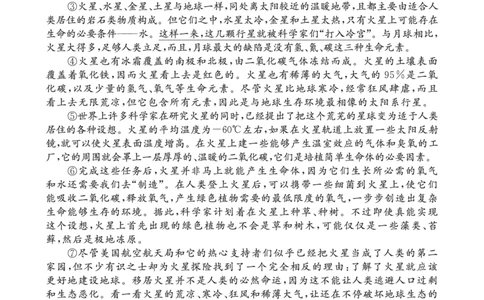 ③火星、水星、金星、土星与地球一样,同处离太阳较近的温暖地带,且都主要由适合人
类居住的岩石类物质构成。但它们之中,水星太冷,金星和土星太热,只有星上可能存在
生命的必要条件——水。这样一来,这几颗行星就被科学家们“打入冷宫”。与月球相比,
火星大得多,足够人类立足,而且,月球最大的缺陷是没有氢、氮、碳这三种生命元素。
④火星也有冰霜覆盖的南极和北极,由二氧化碳气体冻结而成。火星的土壤表面
覆盖着氧化铁,因而火星看上去是红色的。火星也有稀薄的大气,大气的95%是二氧
化碳,以及少量的氮气、氧气等生命元素。尽管火星比地球寒冷,经常狂风肆虐,而且
看上去无限荒凉,但它包含所有元素,因此是与地球生存环境最相像的太阳系行星。
⑤世界上许多科学家在研究火星的同时,已经提出了把这个荒芜的星球变为适于人类
居住的各种设想。火星的平均温度为—60℃左右,如果在火星轨道上放置一些太阳反射
镜,就可以使火星表面温度增高。在火星上建一些能够产生温室效应的气体和臭氧的工
厂,它的周围就会罩上一层厚厚的、温暖的二氧化碳,它们是培植简单生命体的必要因素。
⑥完成这些任务后,火星并非马上就能产生生命体,因为它们生长所必需的氧气
和水还需要我们去“制造”。在人类登上火星后,可以携带一些细菌到火星上,使它们
能吸收二氧化碳,释放氧气,产生绿色植物需要的最低限度的氧气,一步步创造出复杂
生命能够生存的环境。据此,科学家计划着在火星上种草、种树。不过即使真能实现
这个设想,火星上首先出现的绿色植物也不会是草和树木,可能仅仅是一些藻类、苔
藓,然后是极地冻原。
⑦尽管美国航空航天局和它的热心支持者们似乎已经把火星当成了人类的第二
家园,但不少有识之士却为火星探险找到了一个完全相反的理由:了解了火星就应该
更好地建设地球。移居火星并不是人类的必然命运,因为这不能让人类逃避人口过剩
和生态恶化。看一看火星的荒凉、寒冷、狂风和稀薄大气,让还在不停破坏地球生态的